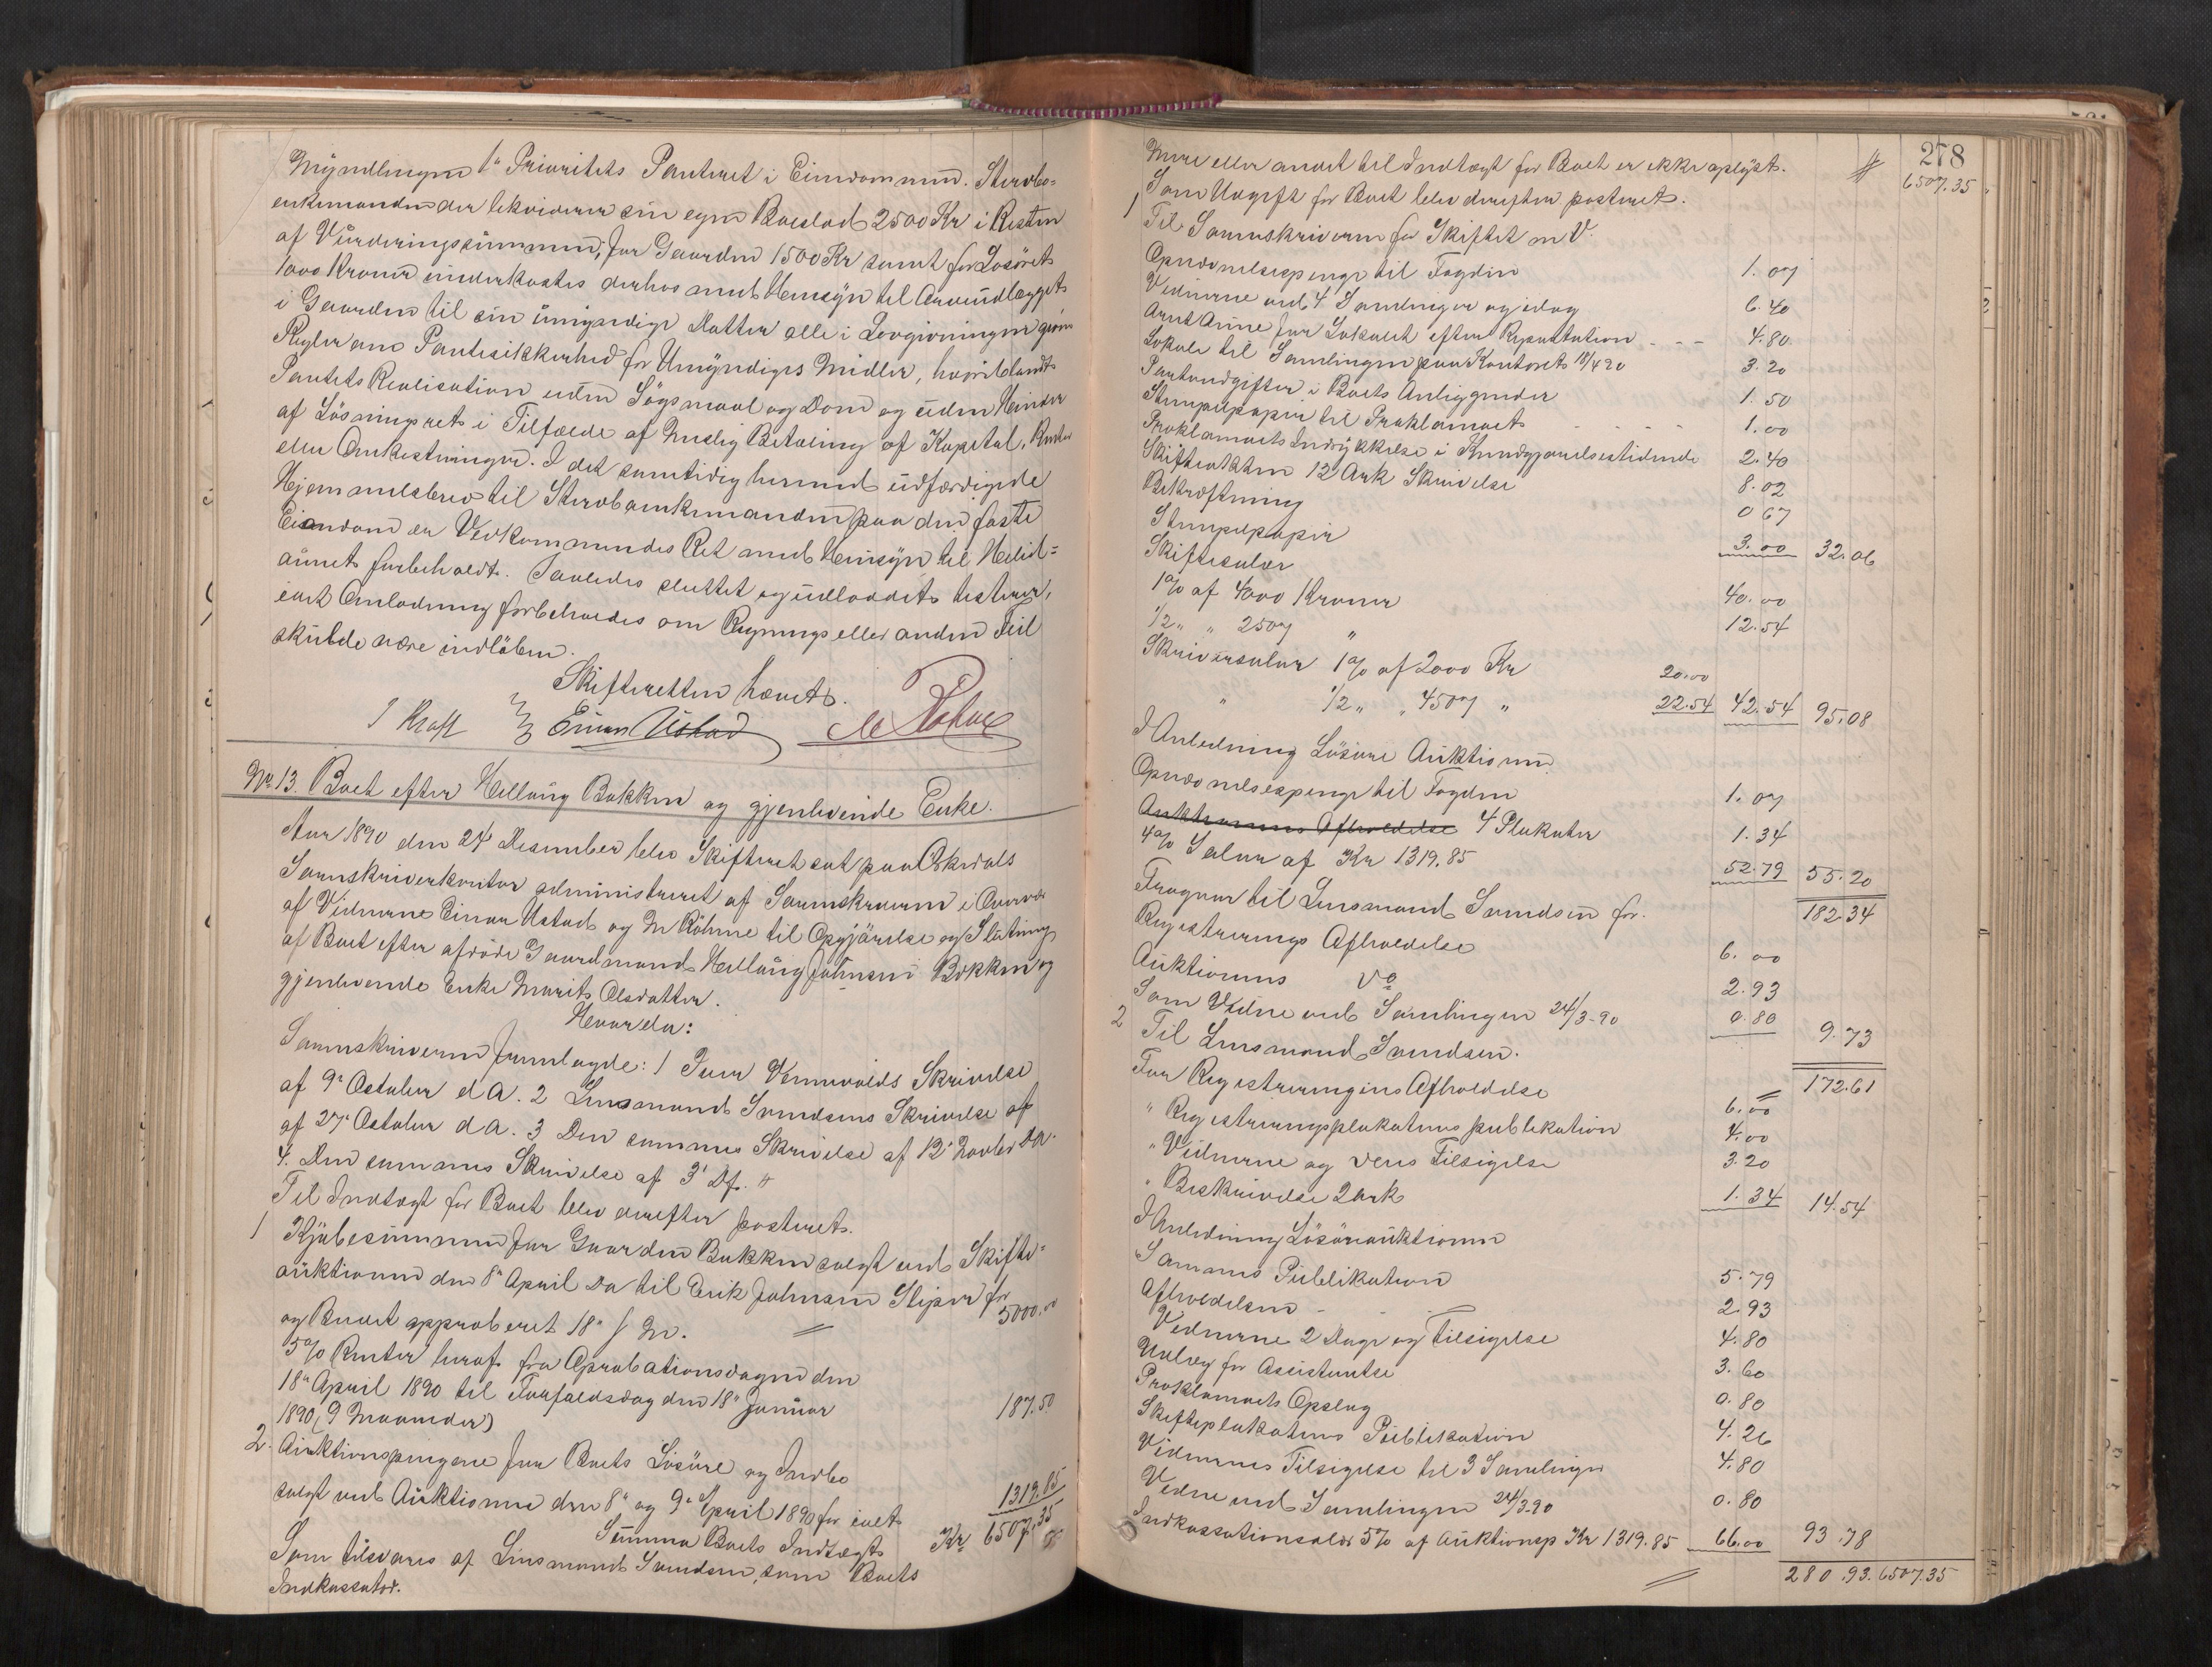 Myndlingen 1ste Prioritets Panteret i Eiendommen. Stervbo-
enkemanden der likviderer sin egen Boeslod 2500 Kr i Resten
af Vurderingssummen, for Gaarden 1500 Kr samt for Løsøret
1000 Kroner underkastes derhos med Hensyn til Arveudlægget
i Gaarden til sin umyndige Datter alle i Lovgivningen givne
Regler om Pantesikkerhed for Umyndiges Midler, hvoriblandt
Pantets Realisation uden Søgsmaal og Dom og uden Hinder
af Løsningsret i Tilfælde af Muslig Betaling af Kapital, Renter
eller Omkostninger. I det samtidig hermed udfærdigede
Hjemmelsbrev til Stervboenkemanden paa den faste
Eiendom er Vedkommendes Ret med Hensyn til
forbeholdt. Saaledes sluttet og udloddet testeres,
idet Anledning forbeholdes om Regnings eller anden Feil
skulde være indløben.
Skifteretten hævet.
I Kraft Einar Ustad M Røhme
No 13. Boet efter Helling Bakken og gjenlevende Enke.
Aar 1890 den 24 Desember blev Skifteret sat paa Orkedals
Sorenskriverkontor administreret af Sorenskriveren i Overvær
af Vidnerne Einar Ustad og M Røhme til Opgjørelse og Slutning
af Boet efter afdøde Gaardmand Helling Johnsen Bakken og
gjenlevende Enke Marit Olsdatter.
Hvorda:
Sorenskriveren fremlagde: 1 Iver Vennevolds Skrivelse
af 9de October d A. 2 Lensmand Svendsens Skrivelse af
af 27de Octobr d A. 3 Den sammes Skrivelse af 12' Novbr d A.
4. Den sammes Skrivelse af 3' Ds. "
Til Indtægt for Boet blev derefter posteret.
1 Kjøbesummen for Gaarden Bakken solgt ved Skifte-
auktionen den 8de April d a til Erik Johnsen Stjørn for
og Budet approberet 18de s M. 5000.00
5% Renter heraf fra Aprobationsdagen den
18de April 1890 til Forfaldsdag den 18de Januar
1890 (9 Maaneder) 187.50
2. Auktionspengene for Boets Løsøre og Indbo
solgt ved Auktionen den 8de og 9de April 1890 for ialt 1319.85
Summa Boets Indtægt Kr 6507.35
Som tilsvares af Lensmand Svendsen, som Boets
Inkassator.
278
Mere eller andet til Indtægt for Boet er ikke oplyst. 6507.35
Som Udgift for Boet blev derefter posteret.
1 Til Sorenskriveren for Skiftet m V.
Opnævnelsespenge til Fogden 1.07
Vidnerne ved 4 Samlinger og idag 6.40
Arnt Aune for Lokalet efter Reputation - - - 4.80
Lokale til Samlingen paa Kontoret 18/4 90 3.20
Portoudgifter i Boets Anliggender 1.50
Stempelpapir til Proklamaet - - - - 1.00
Proklamaets Indrykkelse i Kundgjørelsestidende 2.40
Skifteakten 12 Ark Skrivelse 8.02
Bekræftning 0 67
Stempelpapir 3.00 32.06
Skiftesalær
1% af 4000 Kroner 40.00
1/2 " " 2507 " 12.54
Skriversalær 1% af 2000 Kr 20.00
" 1/2 " " 4507 " 22.54 42.54 95.08
I Anledning Løsøre Auktionen
Opnævnelsespenge til Fogden 1.07
Auktionens Afholdelse 4 Plakater 1.34
4% Salær af Kr 1319.85 52.79 55.20
182.34
Fragaar til Lensmand Svendsen for.
Registrerings Afholdelse 6.00
Auktionens do 2.93
Som Vidne ved Samlingen 24/3-90 0.80 9.73
172.61
2 Til Lensmand Svendsen.
For Registreringens Afholdelse 6.00
" Registreringsplakatens publikation 4.00
" Vidnerne og deres Tilsigelse 3.20
" Beskrivelse 2 Ark 1.34 14.54
I Anledning Løsøreauktionen
Sammes Publikation 5.79
Afholdelsen - - - 2.93
Vidnerne 2 Dage og Tilsigelse 4.80
Udlæg for Assistentse 3.60
Proklamaets Opslag 0.80
Skifteplakatens Publikation 4.26
Vidnernes Tilsigelse til 3 Samlinger 4.80
Vidne ved Samlingen 24/3-90 0.80
Indkassationsalær 5% af Auktionsp Kr 1319.85 66.00 93.78
280.93. 6507.35